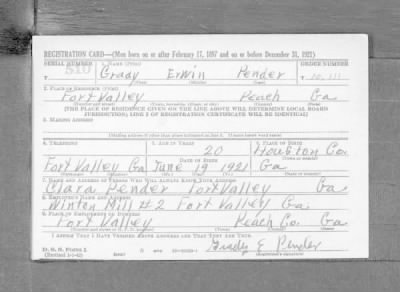 REGISTRATION CARD—(Men born on or after February 17, 1897 and on or before December 31, 1921)
SERIAL NUMBER 1. NAME (Print) ORDER NUMBER
T 510 Grady Erwin Pender T 10,111
(First) (Middle) (Last)
2. PLACE OF RESIDENCE (Print)
Fort Valley Peach Ga
(Number and street) (Town, township, village, or city) (County) (State)
[THE PLACE OF RESIDENCE GIVEN ON THE LINE ABOVE WILL DETERMINE LOCAL BOARD
JURISDICTION; LINE 2 OF REGISTRATION CERTIFICATE WILL BE IDENTICAL]
3. MAILING ADDRESS
[Mailing address if other than place indicated on line 2. If same insert word same]
4. TELEPHONE 5. AGE IN YEARS 6. PLACE OF BIRTH
20 Houston Co.
(Town or county)
Fort Valley Ga June 19 1921 Ga
7. NAME AND ADDRESS OF PERSON WHO WILL ALWAYS KNOW YOUR ADDRESS
Clara Pender Fort Valley Ga.
8. EMPLOYER'S NAME AND ADDRESS
Winton Mill #2 Fort Valley Ga.
9. PLACE OF EMPLOYMENT OR BUSINESS
Fort Valley Peach Co. Ga
I AFFIRM THAT I HAVE VERIFIED ABOVE ANSWERS AND THAT THEY ARE TRUE.
D. S. S. FORM 1 Grady E Pender
(Revised 1-1-42) (Registrant's signature)